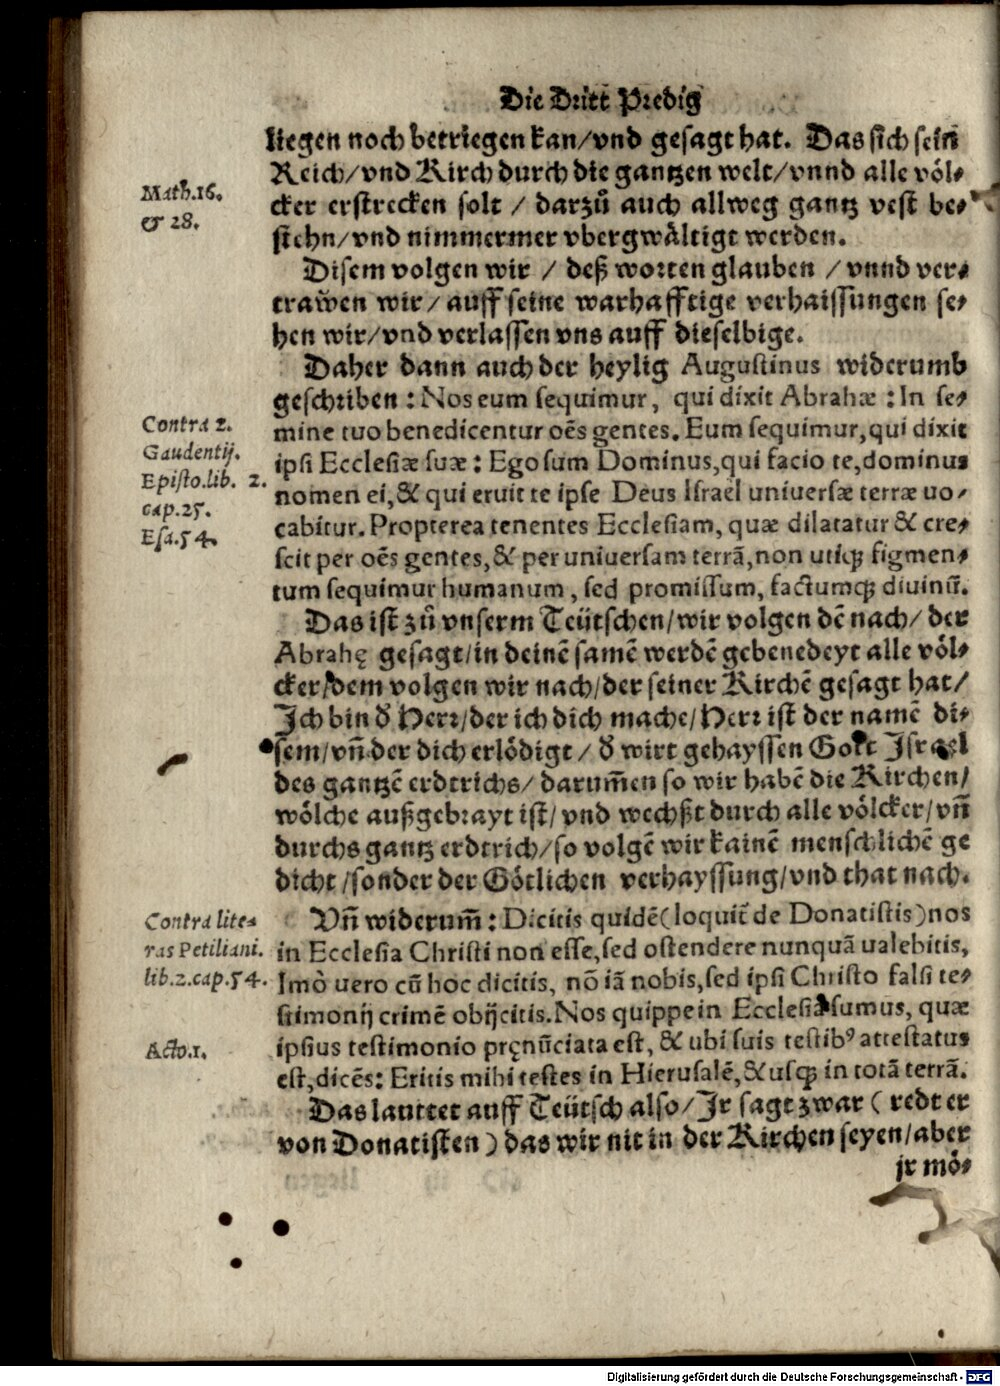 Die Dritt Predig
liegen noch betriegen kan/vnd gesagt hat. Das sich sein
Reich/vnd Kirch durch die gantzen welt/vnnd alle völ⸗
cker erstrecken solt / darzů auch allweg gantz vest be⸗
stehn/vnd nimmermer vbergwältigt werden.
Math.16.
& 28.
Disem volgen wir / deß worten glauben / vnnd ver⸗
trawen wir/ auff seine warhafftige verhaissungen se⸗
hen wir/vnd verlassen vns auff dieselbige.
Daher dann auch der heylig Augustinus widerumb
geschriben : Nos eum sequimur, qui dixit Abrahæ : In se⸗
mine tuo benedicentur oẽs gentes. Eum sequimur, qui dixit
ipsi Ecclesiæ suæ : Ego sum Dominus, qui facio te, dominus
nomen ei, & qui eruit te ipse Deus Israël universæ terræ uo⸗
cabitur. Propterea tenentes Ecclesiam, quæ dilatatur & cre⸗
scit per oẽs gentes, & per universam terrã, non utiqꝫ figmen⸗
tum sequimur humanum, sed promissum, factumqꝫ divinũ.
Contra 2.
Gaudentij.
Episto.lib. 2.
cap.25.
Esa.54.
Das ist zů vnserm Teütschen/wir volgen dẽ nach/ der
Abrahę gesagt/in deinẽ samẽ werdẽ gebenedeyt alle völ⸗
cker/dem volgen wir nach/der seiner Kirchẽ gesagt hat/
Ich bin d̕ Herr/der ich dich mache/Herr ist der namẽ di⸗
sem/vñ der dich erlödigt / d̕ wirt gehayssen Gott Israel
des gantzẽ erdtrichs/ darum̃en so wir habẽ die Kirchen/
wölche außgebrayt ist/ vnd wechßt durch alle völcker/vñ
durchs gantz erdtrich/so volgẽ wir kainẽ menschlichẽ ge
dicht/sonder der Götlichen verhayssung/vnd that nach.
Vñ widerum̃ : Dicitis quidẽ (loquit̃ de Donatistis) nos
in Ecclesia Christi non esse, sed ostendere nunquã ualebitis,
Imò uero cũ hoc dicitis, nõ iã nobis, sed ipsi Christo falsi te⸗
stimonij crimẽ obijcitis. Nos quippe in Ecclesia sumus, quæ
ipsius testimonio pręnũciata est, & ubi suis testibꝰ attestatus
est, dicẽs: Eritis mihi testes in Hierusalẽ, & usqꝫ in totã terrã.
Contra lite⸗
ras Petiliani.
lib.2.cap.54.
Acto.1.
Das lauttet auff Teütsch also/ Ir sagt zwar ( redt er
von Donatisten ) das wir nit in der Kirchen seyen/aber
jr mö⸗
Digitalisierung gefördert durch die Deutsche Forschungsgemeinschaft - DFG